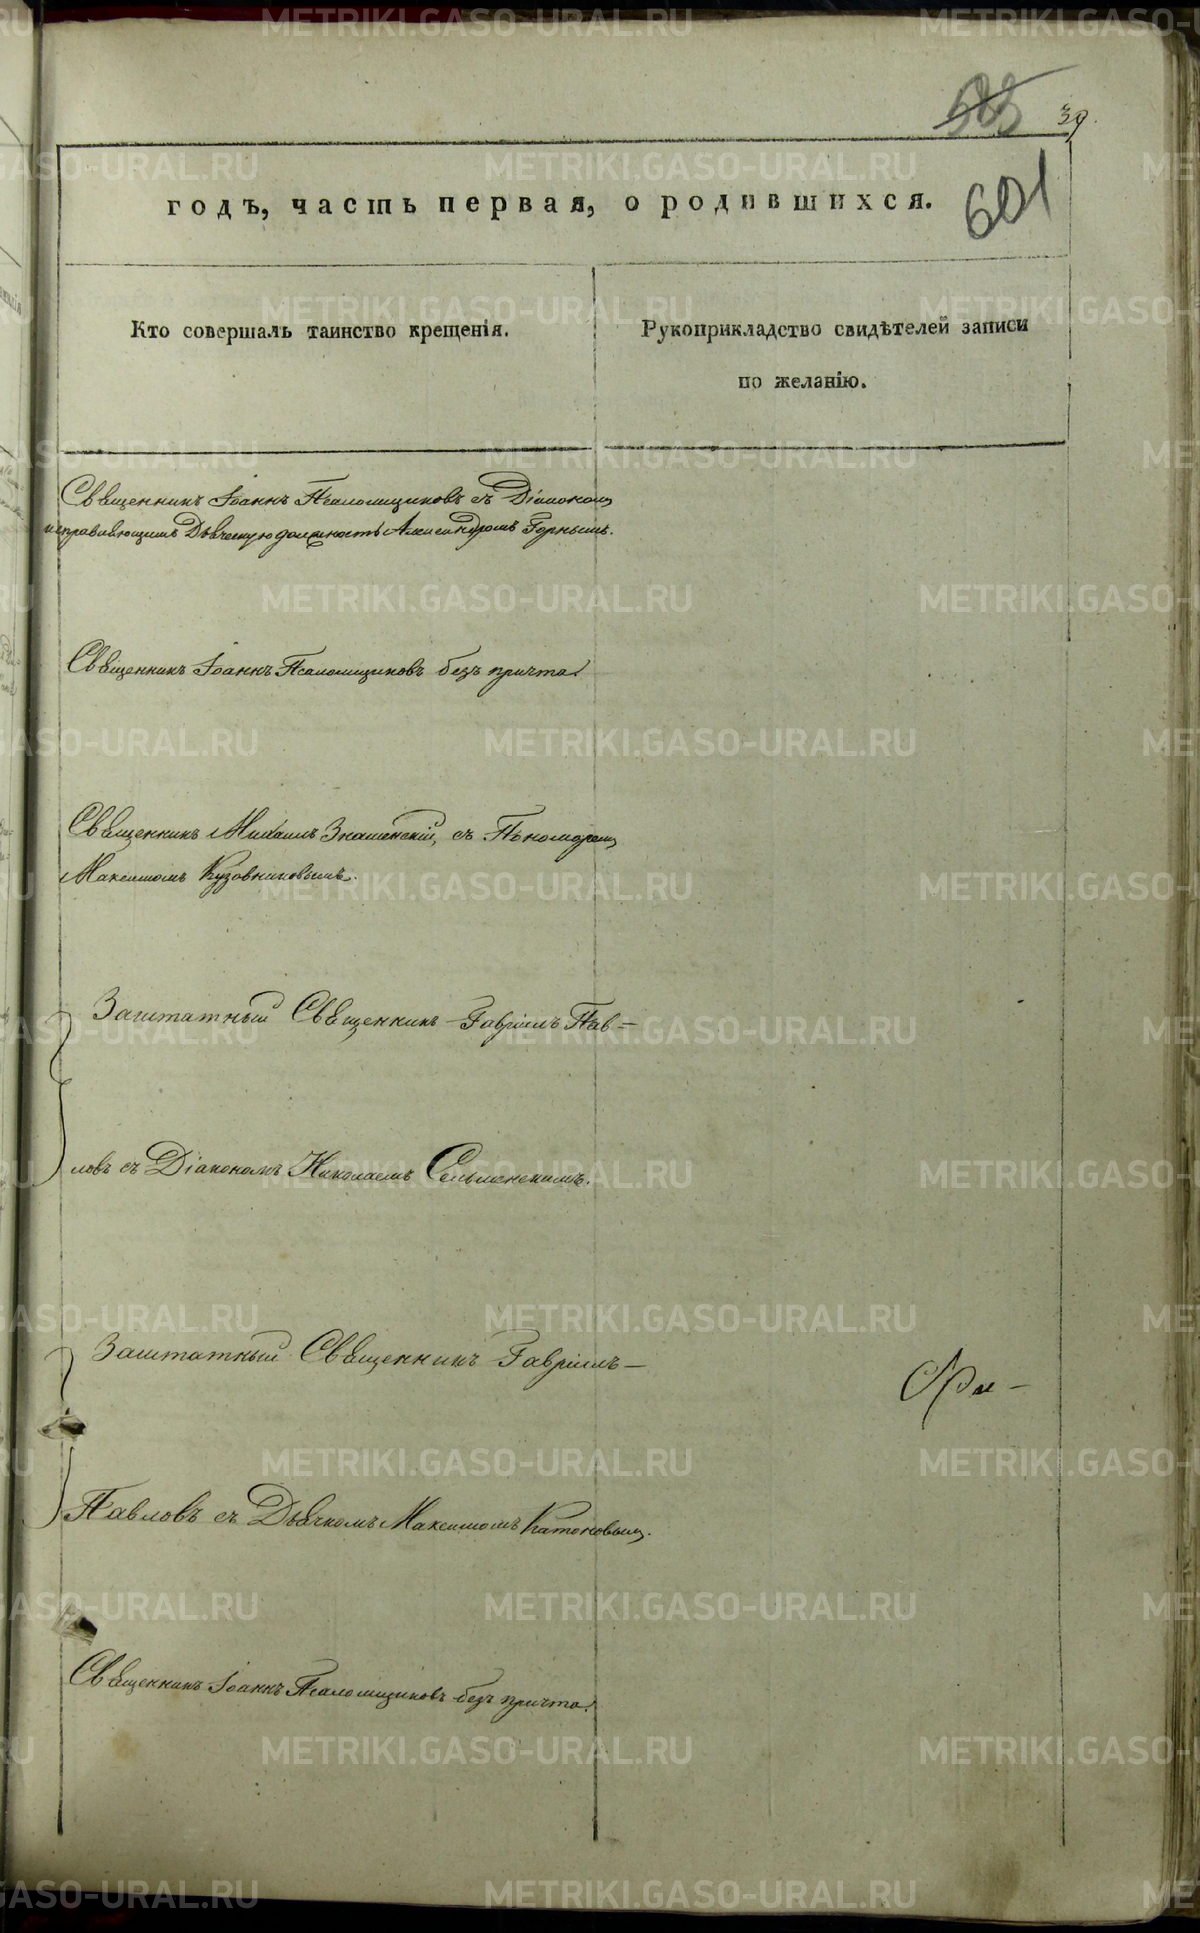 39.
601
годъ, часть первая, о родившихся.
Кто совершалъ таинство крещенія.
Рукоприкладство свидѣтелей записи
по желанію.
Священникъ Іоаннъ Псаломщиковъ съ Діакономъ
исправляющимъ Дьяческую должность Александромъ Горнымъ.
Священникъ Іоаннъ Псаломщиковъ безъ причта.
Священникъ Михаилъ Знаменскій, съ Пономаремъ
Максимомъ Кузовниковымъ.
Заштатный Священникъ Гавріилъ Пав=
ловъ съ Діакономъ Николаемъ Сельменскимъ.
Заштатный Священникъ Гавріилъ —
Павловъ съ Дьячкомъ Максимомъ Катоновымъ.
Священникъ Іоаннъ Псаломщиковъ безъ причта.
METRIKI.GASO-URAL.RU